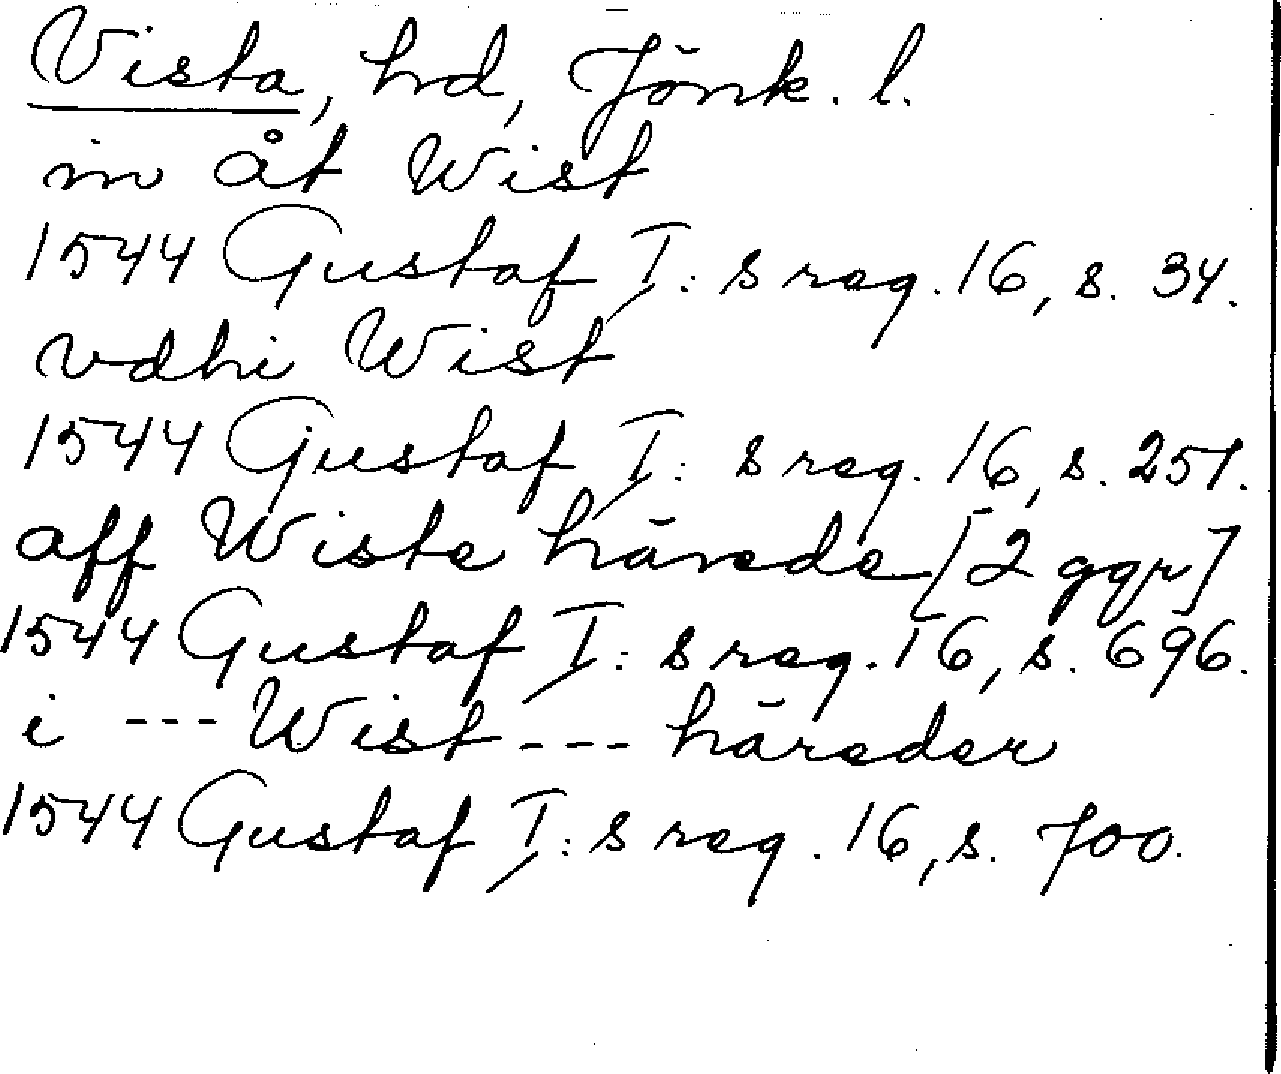 Vista, hd, Jönk. l.
in åt Wist
1544 Gustaf I:s reg. 16, s. 34.
vdhi Wist
1544 Gustaf I:s reg. 16, s. 251.
aff Wiste härede [2 ggr]
1544 Gustaf I:s reg. 16, s. 696.
i --- Wist --- häreder
1544 Gustaf I:s reg. 16, s. 700.